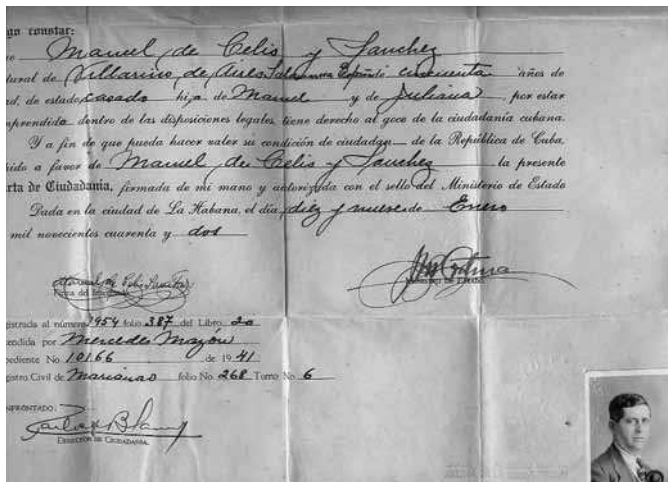 go constar:
Manuel de Celis y Sanchez
tural de Villarino de Aires Salamanca España cincuenta años de
ad, de estado casado hijo de Manuel y de Juliana, por estar
mprendido dentro de las disposiciones legales, tiene derecho al goce de la ciudadanía cubana.
Y a fin de que pueda hacer valer su condición de ciudadan— de la República de Cuba,
pido a favor de Manuel de Celis y Sanchez la presente
rta de Ciudadanía, firmada de mi mano y autorizada con el sello del Ministerio de Estado
Dada en la ciudad de La Habana, el día diez y nueve de Enero
mil novecientos cuarenta y dos
Manuel de Celis Sanchez
Firma del
gistrada al número 1954 folio 387 del Libro 20
endida por Mercedes Mazón
pediente No 10166 de 1941
gistro Civil de Marianao folio No. 268 Tomo No 6
NFRONTADO:
DIRECCION DE CIUDADANIA.